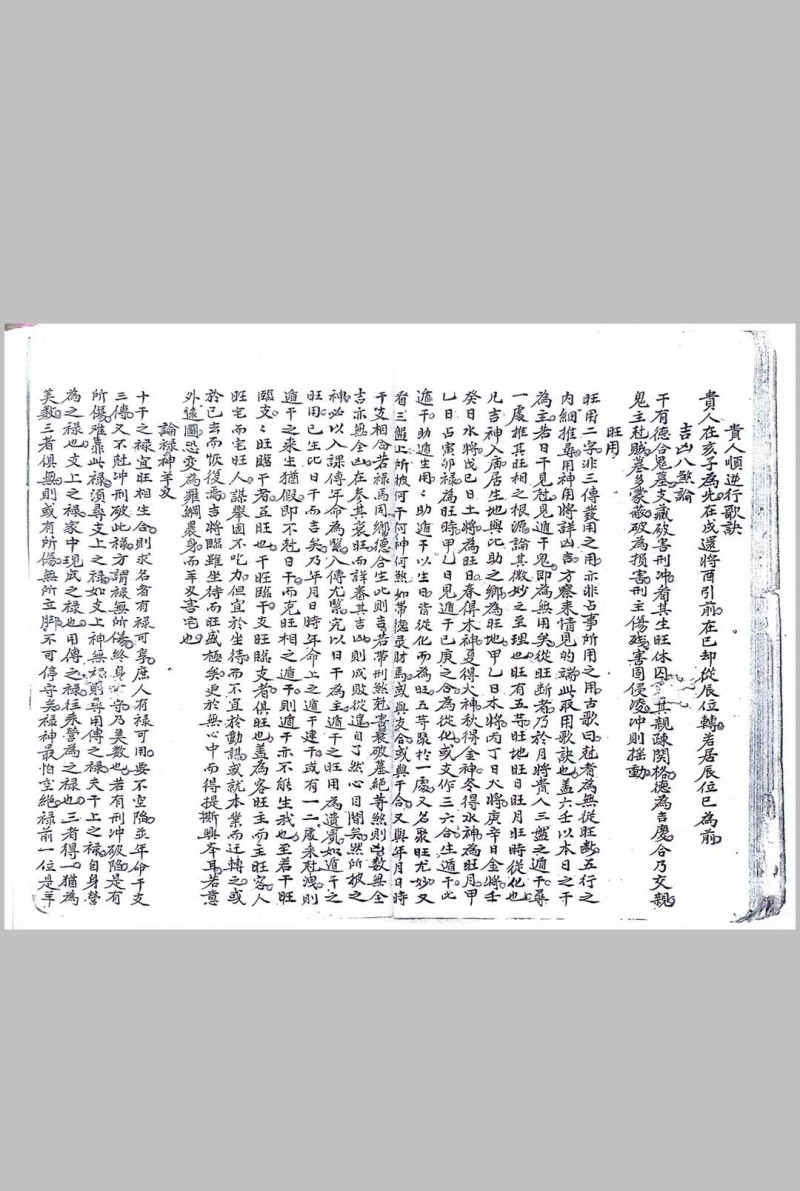 貴人順逆行歌訣
貴人在亥子為先在戌還將酉引前在巳却從辰位轉若居辰位巳為前
吉凶八煞論
干有德合鬼墓支藏破害刑冲看其生旺休囚其親疎関格德為吉慶合乃交親
鬼主尅賊墓多蒙蔽破為損害刑主傷殘害因侵凌冲則摇動
旺用
旺用二字非三傳發用之用亦非占事所用之用古歌曰尅者為無從旺断五行之
內細推尋用神用將詳凶吉方察來情見的端此取用歌訣也盖六壬以本日之干
為主若日干見尅見遁干鬼即為無用矣從旺断者乃於月將貴人三盤之遁干尋
一處推其旺相之根源論其微妙之至理也旺有五等旺地旺日旺月旺時從化也
凡吉神入廟居生地與比助之鄉為旺地甲乙日木將丙丁日火將庚辛日金將壬
癸日水將戊己日土將為旺日春得木神夏得火神秋得金神冬得水神為旺月甲
乙日占寅卯禄為旺時甲乙日見遁干己庚之合為從化或支作三六合生遁干此
遁干助遁生用〻助遁干以生日皆從化而為旺五等聚於一處又名聚旺尤妙又
看三盤上所披何干何神何煞如帶德录財馬或與支合或與干合又與年月日時
干支相合若禄馬同鄉德合生此則吉若带刑煞尅害衰破墓絕等煞則凶數無全
吉亦無全凶在参其衰旺而詳審其吉凶則成敗從違自了然心目間矣然所披之
神必以入課傳年命為緊入傳尤緊究以日干為主遁干之旺用為遺賓如遁干之
旺用已生比日干而吉矣乃年月日時年命上之遁干建干或有一二處来尅洩則
遁干之来生猶假即不尅日干而克旺相之遁干則遁干亦不能生我也至若干旺
臨支〻旺臨干者互旺也干旺臨干支旺臨支者俱旺也盖為客旺主而主旺客人
旺宅而宅旺人謀舉固不吃力但宜於坐待而不宜於動謁或就本業而迁轉之或
於已去而恢復焉吉將臨雖坐待而旺或極矣更於無心中而得提撕興本耳若意
外遠圖恐变為羅網纏身而羊刃害宅也
論禄神羊刃
十干之禄宜旺相生合則求名者有禄可享庶人有禄可用要不空陷並年命干支
三傳又不尅冲刑破此禄方謂禄無所傷終身守乃美数也若有刑冲破陷是有
所傷难靠此禄須尋支上之禄如支上神無禄則尋用傳之禄夫干上之禄自身營
為之禄也支上之禄家中現成之禄也用傳之禄往来營為之禄也三者得一猶為
美数三者俱無則或有所傷無所立脚不可停守矣禄神最怕空絕禄前一位是羊